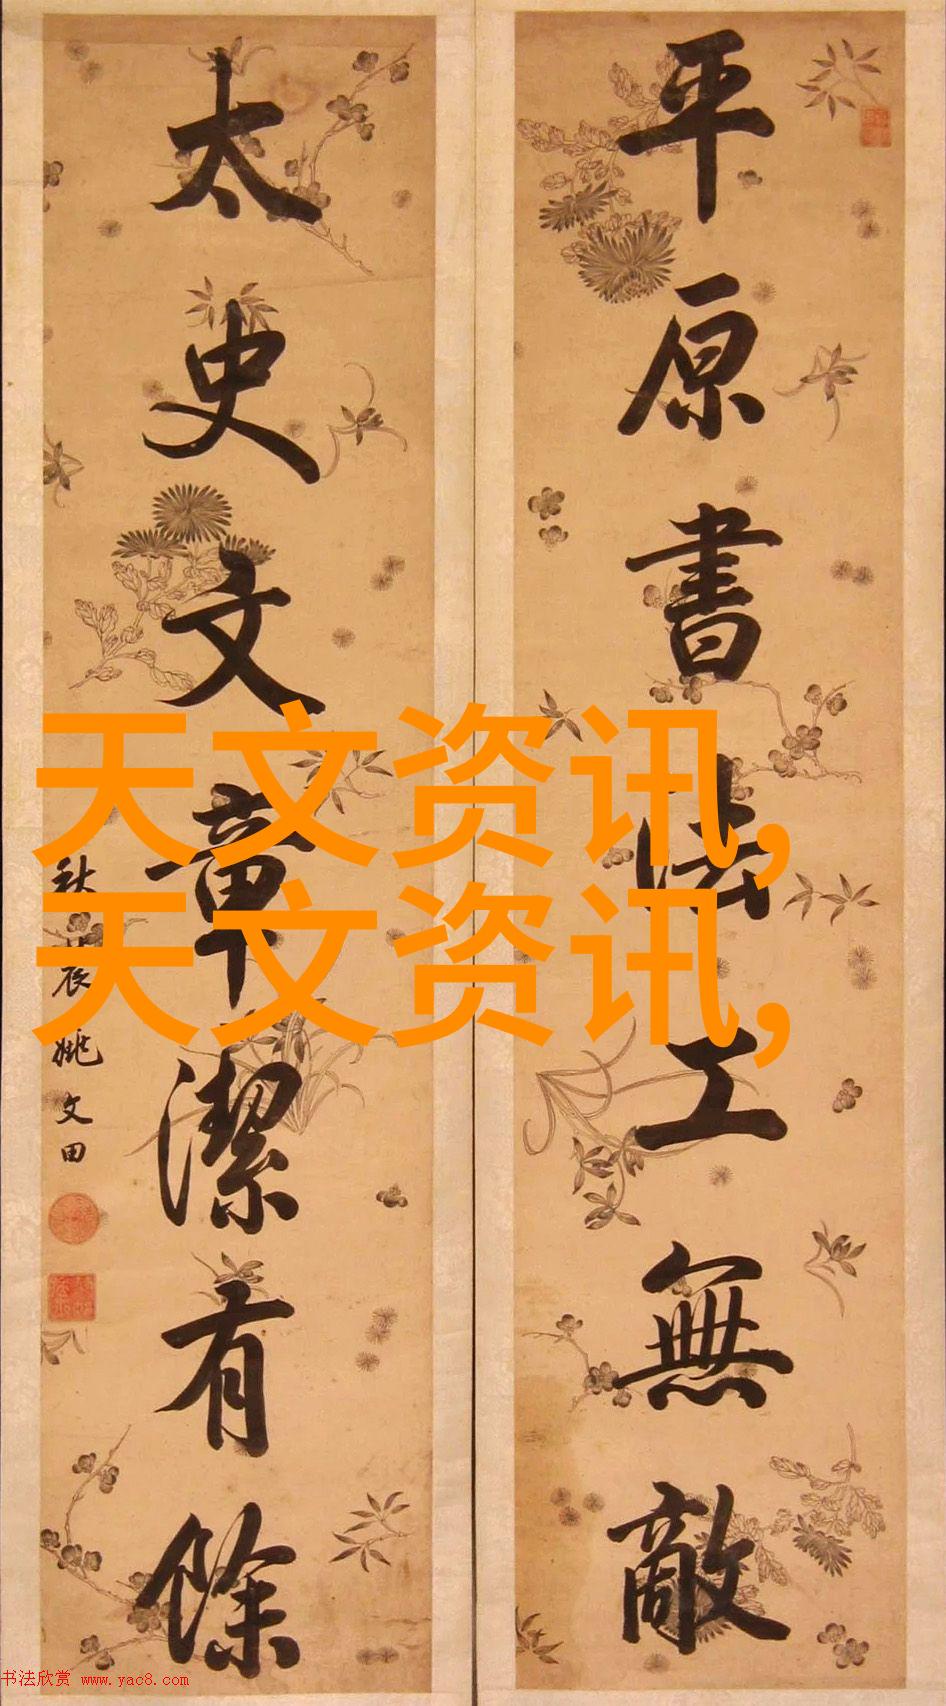 平原書法工無敵
太史文章潔有餘
秋辰姚文田
天文资讯,
天文资讯,
书法欣赏 www.yac8.com